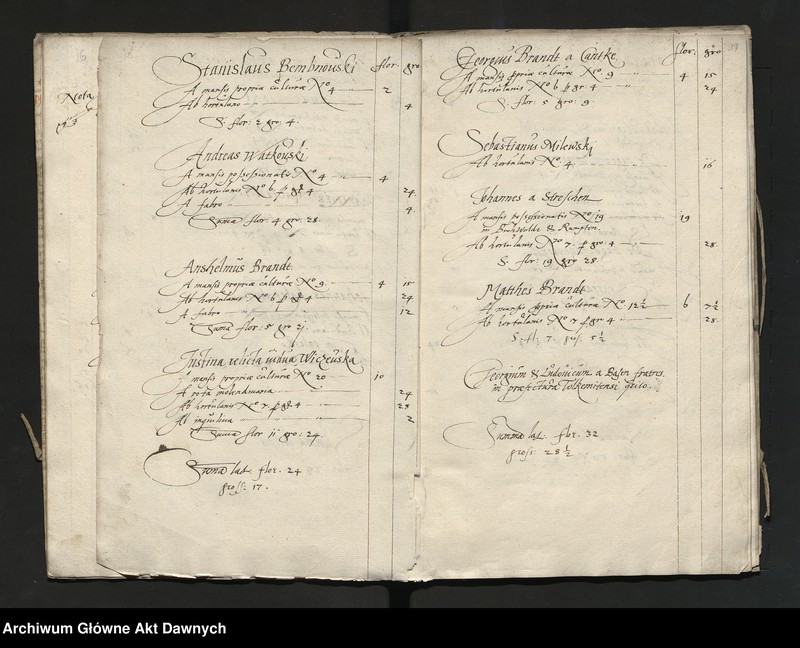 Nota
Stanislaus Bembnouski flor gro
A mansis propriæ culturæ No 4 2
Ab hortulano 4
S: flor: 2 gro: 4.
Andreas Watkouski
A mansis possessionatis No 4 4
Ab hortulanis No 6 p gr 4 24
A fabro 4
Suma flor: 4 gro: 28
Anshelmus Brandt
A mansis propriæ culturæ No 9 4 15
Ab hortulanis No 6 p gr 4 24
A fabro 12
Suma flor: 5 gro 21
Justina relicta vidua Wiczeuska
A mansis propriæ culturæ No 20 10
A rota molendinaria 24
Ab hortulanis No 7 p gr 4 28
Ab inquilina 2
Suma flor 11 gro: 24
Suma lat. flor. 24
gross: 17.
Georgius Brandt a Cantke flor: gro
A mansis propriæ culturæ No 9 4 15
Ab hortulanis No 6 p gr 4 24
S: flor: 5 gro: 9
Sebastianus Milewski
Ab hortulanis No: 4 16
Johannes a Streschen
A mansis possessionatis No 19 19
in Buchwolde & Rampten.
Ab hortulanis No 7 p gro: 4 28
S: flor: 19 gro 28
Matthes Brandt
A mansis propriæ culturæ No 12½ 6 7½
Ab hortulanis No 7 p gr 4 28
S: fl: 7. gros. 5½
Georgium & Ludovicum a Basen fratres
in præfectura Tolkemitensi
Summa lat. flor. 32
gross: 28½
Archiwum Główne Akt Dawnych